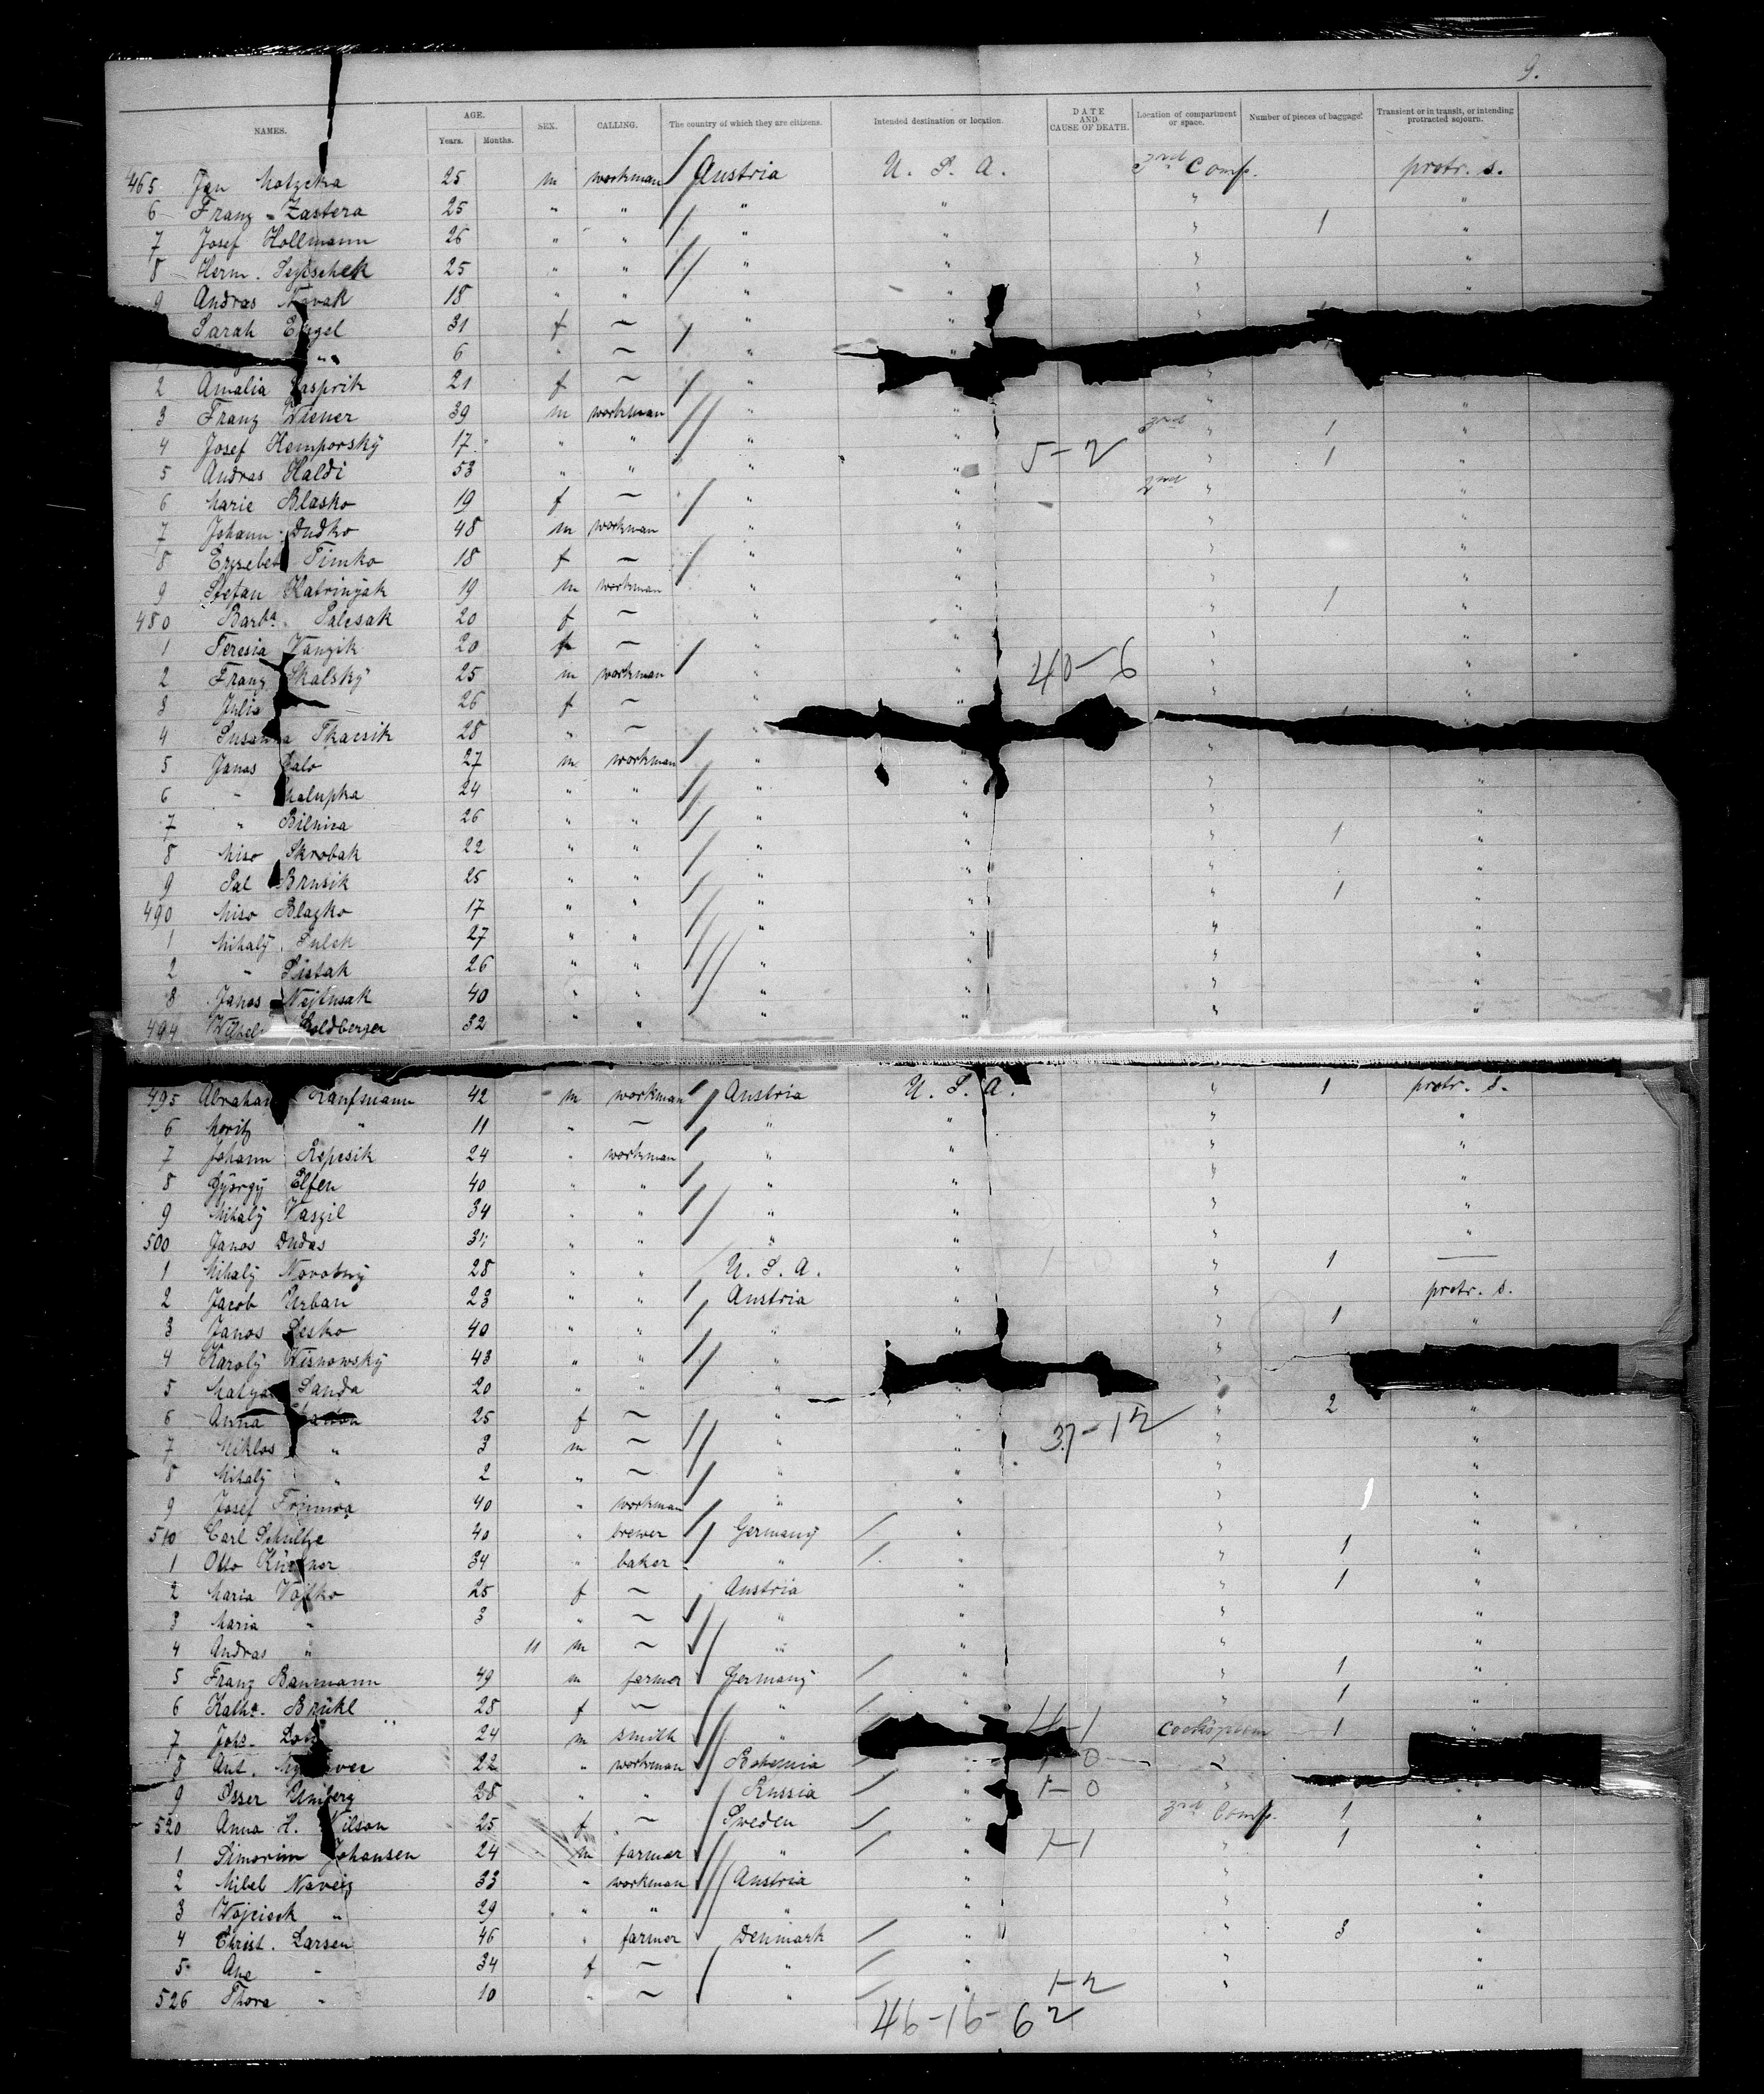 9.
NAMES. AGE. Years. Months. SEX. CALLING. The country of which they are citizens. Intended destination or location. DATE AND CAUSE OF DEATH. Location of compartment or space. Number of pieces of baggage. Transient or in transit, or intending protracted sojourn.
465 Jan Matzcka 25 m workman Austria U. S. A. 3rd Comp. protr. s.
6 Franz Zastera 25 " " " " " 1 "
7 Josef Hollmann 26 " " " " " "
8 Herm. 25 " " " " " "
9 Andras Novak 18 " " " " " "
Sarah Engel 31 f — " "
" 6 " — " "
2 Amalia Gasprik 21 f — " "
3 Franz Wiener 39 m workman " " 3rd " 1 "
4 Josef Kemporský 17 " " " " 5-2 " 1 "
5 Andras Haldi 53 " " " " 2nd " "
6 Marie Blasko 19 f — " " " "
7 Johann Dudko 48 m workman " " " "
8 Erzsebet Timko 18 f — " " " "
9 Stefan Katrinyak 19 m workman " " " 1 "
480 Barba. Palcsak 20 f — " " " "
1 Teresia Vanzik 20 f — " " " "
2 Franz Skalský 25 m workman " " 40-6 " "
3 Julia 26 f — " "
4 Susanna Tkacsik 28 " — "
5 Janos Salo 27 m workman " " " "
6 " Chalupka 24 " " " " " "
7 " Bilnica 26 " " " " " 1 "
8 Miso Skrobak 22 " " " " " "
9 Pal Brusik 25 " " " " " 1 "
490 Miso Blazko 17 " " " " " "
1 Mihalý Sulek 27 " " " " " "
2 " Sistak 26 " " " " " "
3 Janos Nejtusak 40 " " " " " "
494 Wilhel Goldberger 32 " " " " " "
495 Abraham Kaufmann 42 m workman Austria U. S. A. " 1 protr. s.
6 Moritz " 11 " — " " " "
7 Johann Repcsik 24 " workman " " " "
8 György Elfen 40 " " " " " "
9 Mihalý Vaszil 34 " " " " " "
500 Janos Dudas 34 " " " " " "
1 Mihalý Novotný 28 " " U. S. A. " " 1 —
2 Jacob Urban 23 " " Austria " " protr. s.
3 Janos Lesko 40 " " " " " 1 "
4 Karolý Wisnowský 43 " " " "
5 Matyas Sanda 20 " " " " "
6 Anna 25 f — " " " 2 "
7 Miklos " 3 m — " " 37-12 " "
8 Mihalý " 2 " — " " " "
9 Josef 40 " workman " " " 1 "
510 Carl Schultze 40 " brewer Germany " " "
1 Otto 34 " baker " " " 1 "
2 Maria Vojtko 25 f — Austria " " 1 "
3 Maria " 3 " — " " " "
4 Andras " 11 m — " " " "
5 Franz Baumann 49 m farmer Germany " " 1 "
6 Katha. Brükl 28 f — " " 1 "
7 Johs. 24 m smith " 4-1 1 "
8 Ant. 22 " workman Bohemia " 1-0 "
9 Osser Umberg 28 " " Russia " 1-0 " "
520 Anna H. Nilson 25 f — Sweden " 3rd Comp. 1 "
1 Simorim Johansen 24 m farmer " " 1-1 " 1 "
2 Mihel Naveis 33 " workman Austria " " "
3 Wojciech " 29 " " " " " "
4 Christ. Larsen 46 " farmer Denmark " " 3 "
5 Ane " 34 f — " " " "
526 Thora " 10 " — " " 1-2 " "
46-16-62